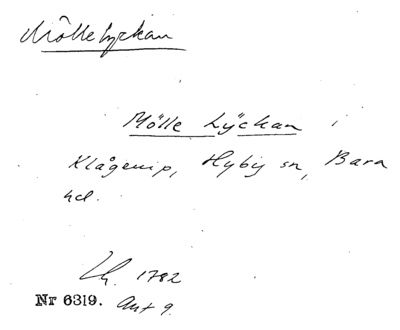 Möllelyckan
Mölle Lÿckan i
Klågerup, Hyby sn, Bara
hd.
Lh. 1782
Nr 6319. Akt 9.